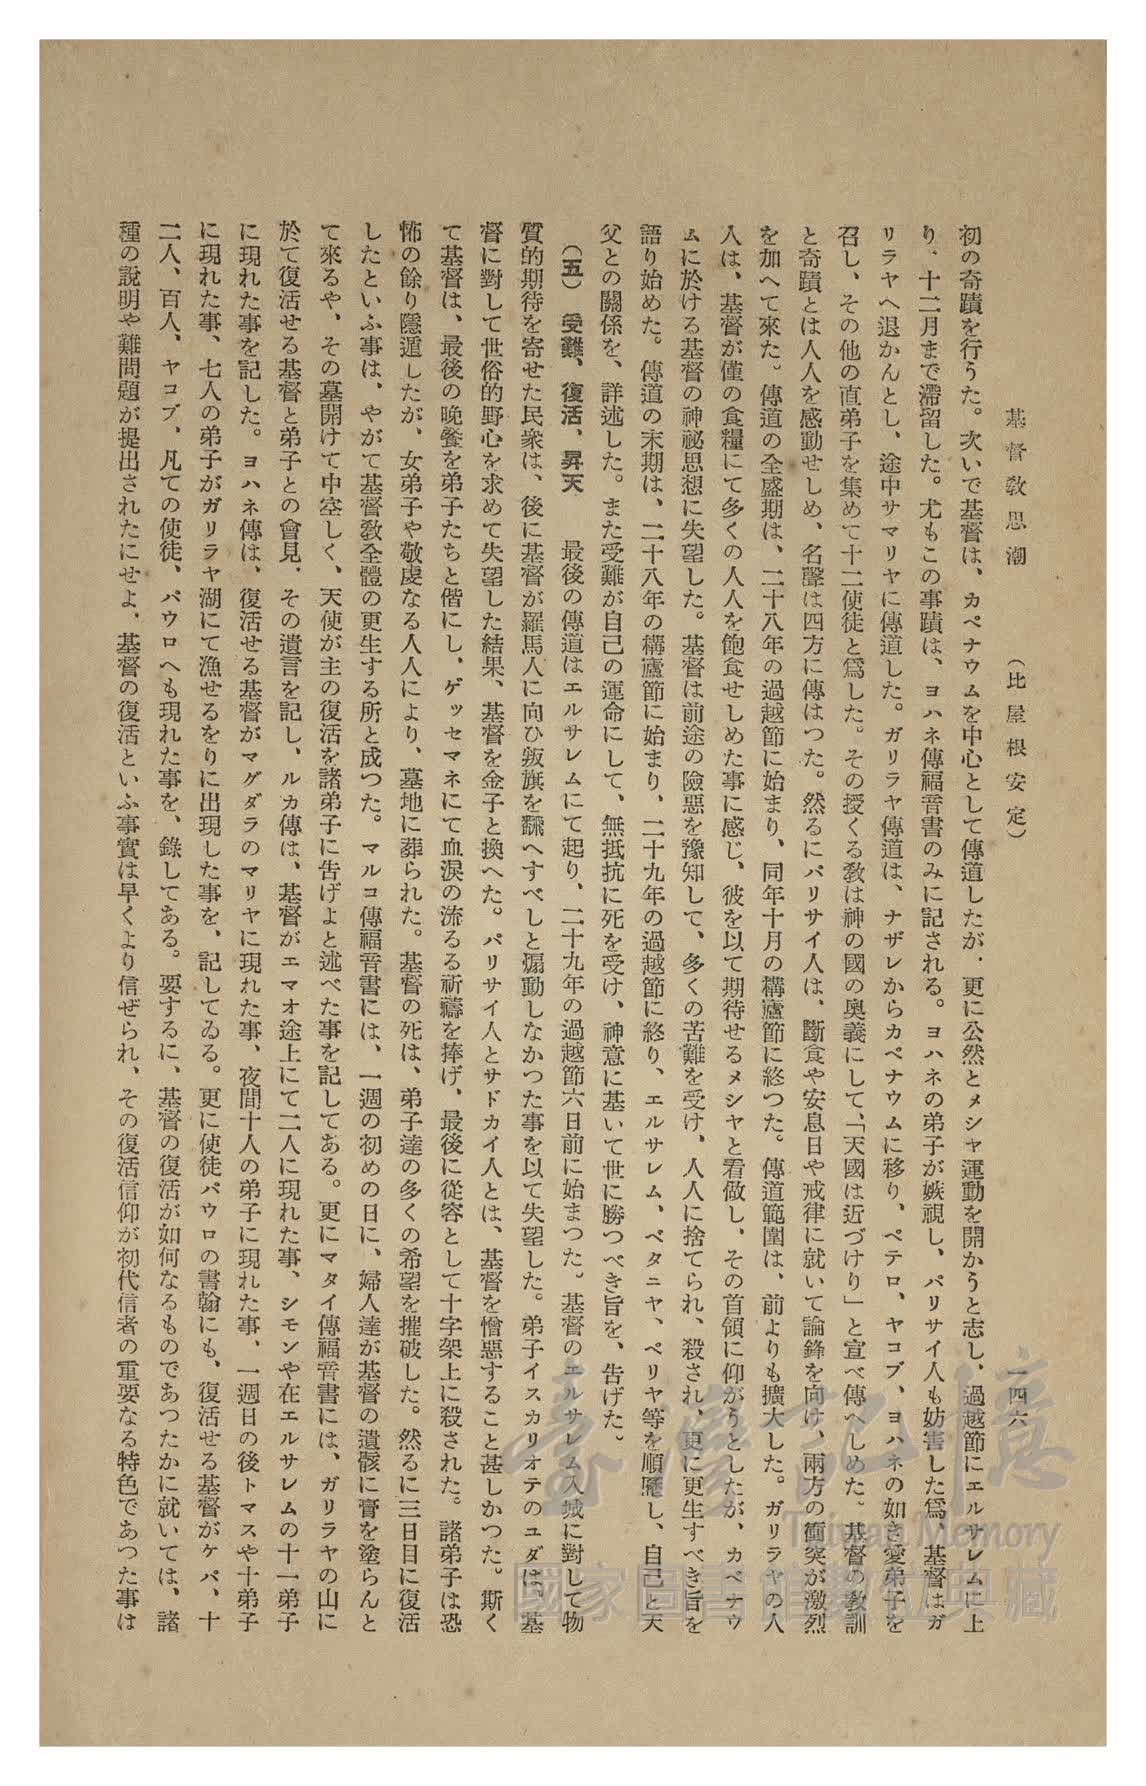 基督教思潮　（比屋根安定）　一四六
初の奇蹟を行うた。次いで基督は、カペナウムを中心として傳道したが、更に公然とメシヤ運動を開かうと志し、過越節にエルサレムに上
り、十二月まで滯留した。尤もこの事蹟は、ヨハネ傳福音書のみに記される。ヨハネの弟子が嫉視し、パリサイ人も妨害した爲、基督はガ
リラヤへ退かんとし、途中サマリヤに傳道した。ガリラヤ傳道は、ナザレからカペナウムに移り、ペテロ、ヤコブ、ヨハネの如き愛弟子を
召し、その他の直弟子を集めて十二使徒と爲した。その授くる敎は神の國の奧義にして、「天國は近づけり」と宣べ傳へしめた。基督の敎訓
と奇蹟とは人人を感動せしめ、名聲は四方に傳はつた。然るにパリサイ人は、斷食や安息日や戒律に就いて論鋒を向け、兩方の衝突が激烈
を加へて來た。傳道の全盛期は、二十八年の過越節に始まり、同年十月の構廬節に終つた。傳道範圍は、前よりも擴大した。ガリラヤの人
人は、基督が僅の食糧にて多くの人人を飽食せしめた事に感じ、彼を以て期待せるメシヤと看做し、その首領に仰がうとしたが、カペナウ
ムに於ける基督の神祕思想に失望した。基督は前途の險惡を豫知して、多くの苦難を受け、人人に捨てられ、殺され、更に更生すべき旨を
語り始めた。傳道の末期は、二十八年の構廬節に始まり、二十九年の過越節に終り、エルサレム、ベタニヤ、ペリヤ等を順歷し、自己と天
父との關係を、詳述した。また受難が自己の運命にして、無抵抗に死を受け、神意に基いて世に勝つべき旨を、告げた。
（五）　受難、復活、昇天　最後の傳道はエルサレムにて起り、二十九年の過越節六日前に始まつた。基督のエルサレム入城に對して物
質的期待を寄せた民衆は、後に基督が羅馬人に向ひ叛旗を飜へすべしと煽動しなかつた事を以て失望した。弟子イスカリオテのユダは、基
督に對して世俗的野心を求めて失望した結果、基督を金子と換へた。パリサイ人とサドカイ人とは、基督を憎惡すること甚しかつた。斯く
て基督は、最後の晩餐を弟子たちと偕にし、ゲッセマネにて血淚の流るる祈禱を捧げ、最後に從容として十字架上に殺された。諸弟子は恐
怖の餘り隱遁したが、女弟子や敬虔なる人人により、墓地に葬られた。基督の死は、弟子達の多くの希望を摧破した。然るに三日目に復活
したといふ事は、やがて基督敎全體の更生する所と成つた。マルコ傳福音書には、一週の初めの日に、婦人達が基督の遺骸に膏を塗らんと
て來るや、その墓開けて中空しく、天使が主の復活を諸弟子に告げよと述べた事を記してある。更にマタイ傳福音書には、ガリラヤの山に
於て復活せる基督と弟子との會見、その遺言を記し、ルカ傳は、基督がエマオ途上にて二人に現れた事、シモンや在エルサレムの十一弟子
に現れた事を記した。ヨハネ傳は、復活せる基督がマグダラのマリヤに現れた事、夜間十人の弟子に現れた事、一週日の後トマスや十弟子
に現れた事、七人の弟子がガリラヤ湖にて漁せるをりに出現した事を、記してゐる。更に使徒パウロの書翰にも、復活せる基督がケパ、十
二人、百人、ヤコブ、凡ての使徒、パウロへも現れた事を、錄してある。要するに、基督の復活が如何なるものであつたかに就いては、諸
種の說明や難問題が提出されたにせよ、基督の復活といふ事實は早くより信ぜられ、その復活信仰が初代信者の重要なる特色であつた事は
臺灣記憶
Taiwan Memory
國家圖書館數位典藏